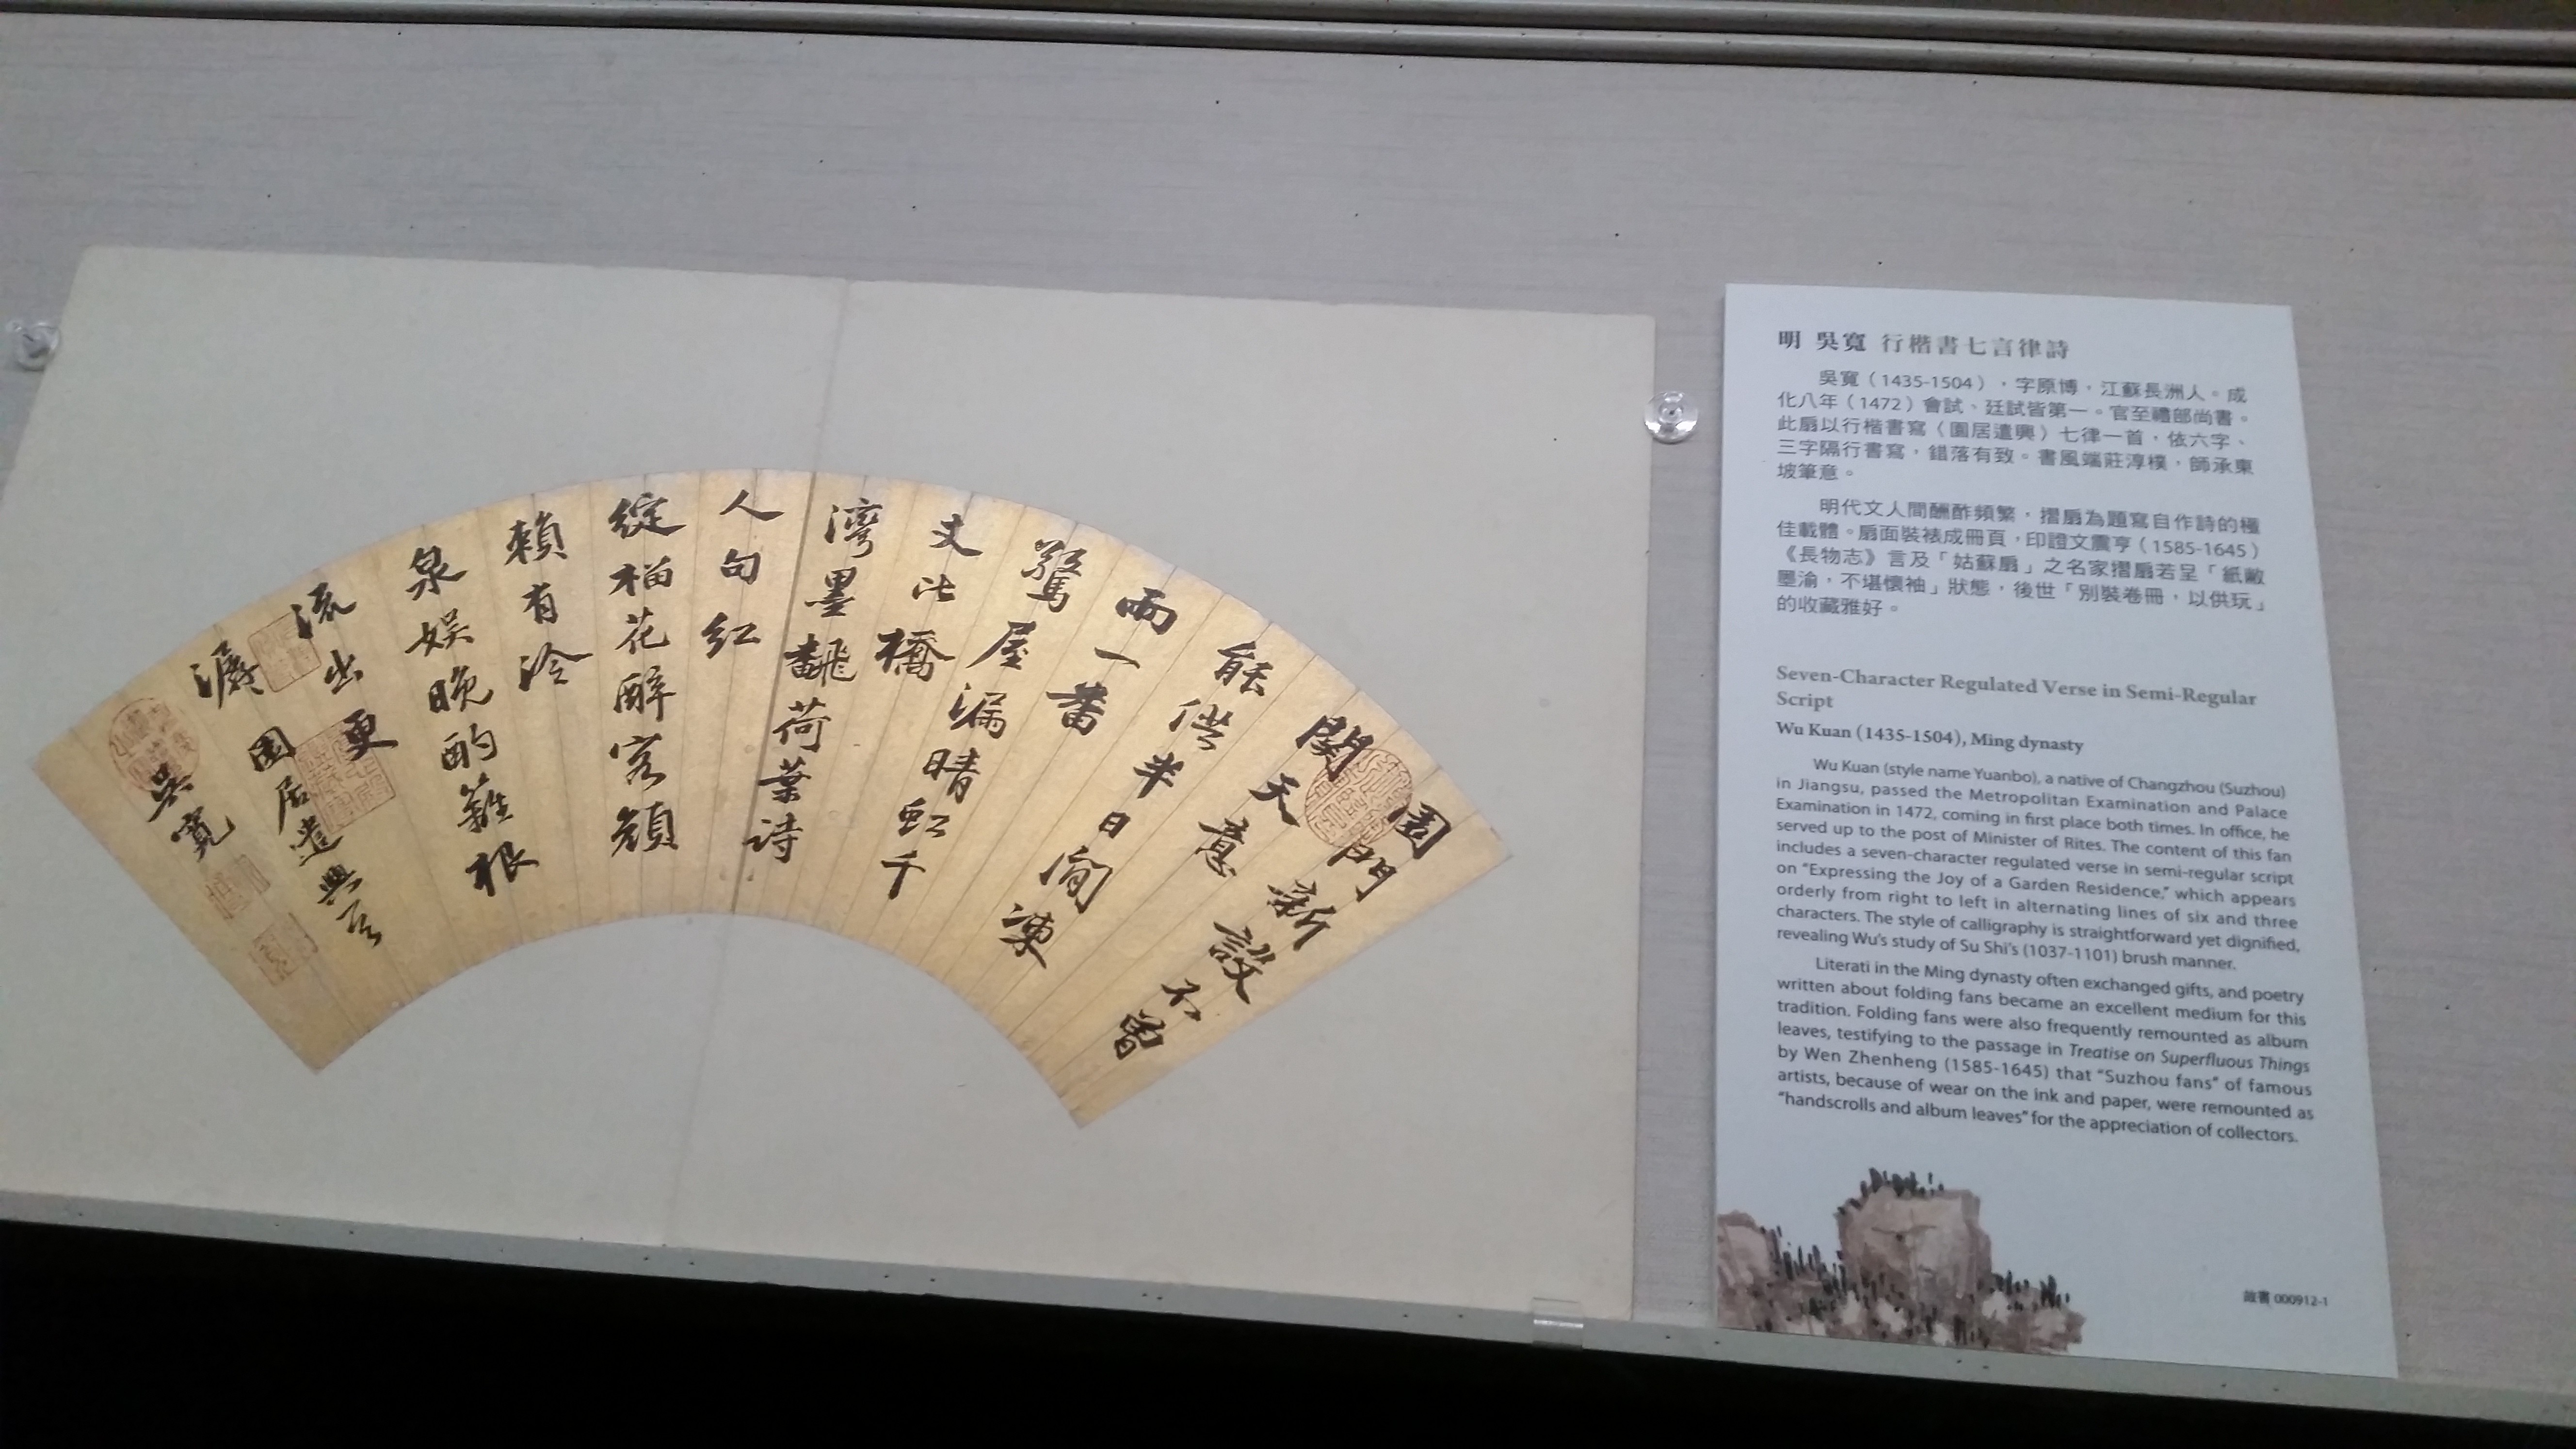 園門新設不曾
関天意
能供半日間凍
雨一番
驚屋漏晴虹千
丈比橋
灣墨翻荷葉詩
人句紅
綻榴花醉客顏
賴有泠
泉娛晚酌籬根
流出更
潺
園居遣興一首
吳寬
明 吳寬 行楷書七言律詩
吳寬(1435-1504),字原博,江蘇長洲人。成
化八年(1472)會試、廷試皆第一。官至禮部尚書。
此扇以行楷書寫〈園居遣興〉七律一首,依六字、
三字隔行書寫,錯落有致。書風端莊淳樸,師承東
坡筆意。
明代文人間酬酢頻繁,摺扇為題寫自作詩的極
佳載體。扇面裝裱成冊頁,印證文震亨(1585-1645)
《長物志》言及「姑蘇扇」之名家摺扇若呈「紙敝
墨渝,不堪懷袖」狀態,後世「別裝卷冊,以供玩」
的收藏雅好。
Seven-Character Regulated Verse in Semi-Regular
Script
Wu Kuan (1435-1504), Ming dynasty
Wu Kuan (style name Yuanbo), a native of Changzhou (Suzhou)
in Jiangsu, passed the Metropolitan Examination and Palace
Examination in 1472, coming in first place both times. In office, he
served up to the post of Minister of Rites. The content of this fan
includes a seven-character regulated verse in semi-regular script
on "Expressing the Joy of a Garden Residence," which appears
orderly from right to left in alternating lines of six and three
characters. The style of calligraphy is straightforward yet dignified,
revealing Wu's study of Su Shi's (1037-1101) brush manner.
Literati in the Ming dynasty often exchanged gifts, and poetry
written about folding fans became an excellent medium for this
tradition. Folding fans were also frequently remounted as album
leaves, testifying to the passage in Treatise on Superfluous Things
by Wen Zhenheng (1585-1645) that "Suzhou fans" of famous
artists, because of wear on the ink and paper, were remounted as
"handscrolls and album leaves" for the appreciation of collectors.
故書 000912-1